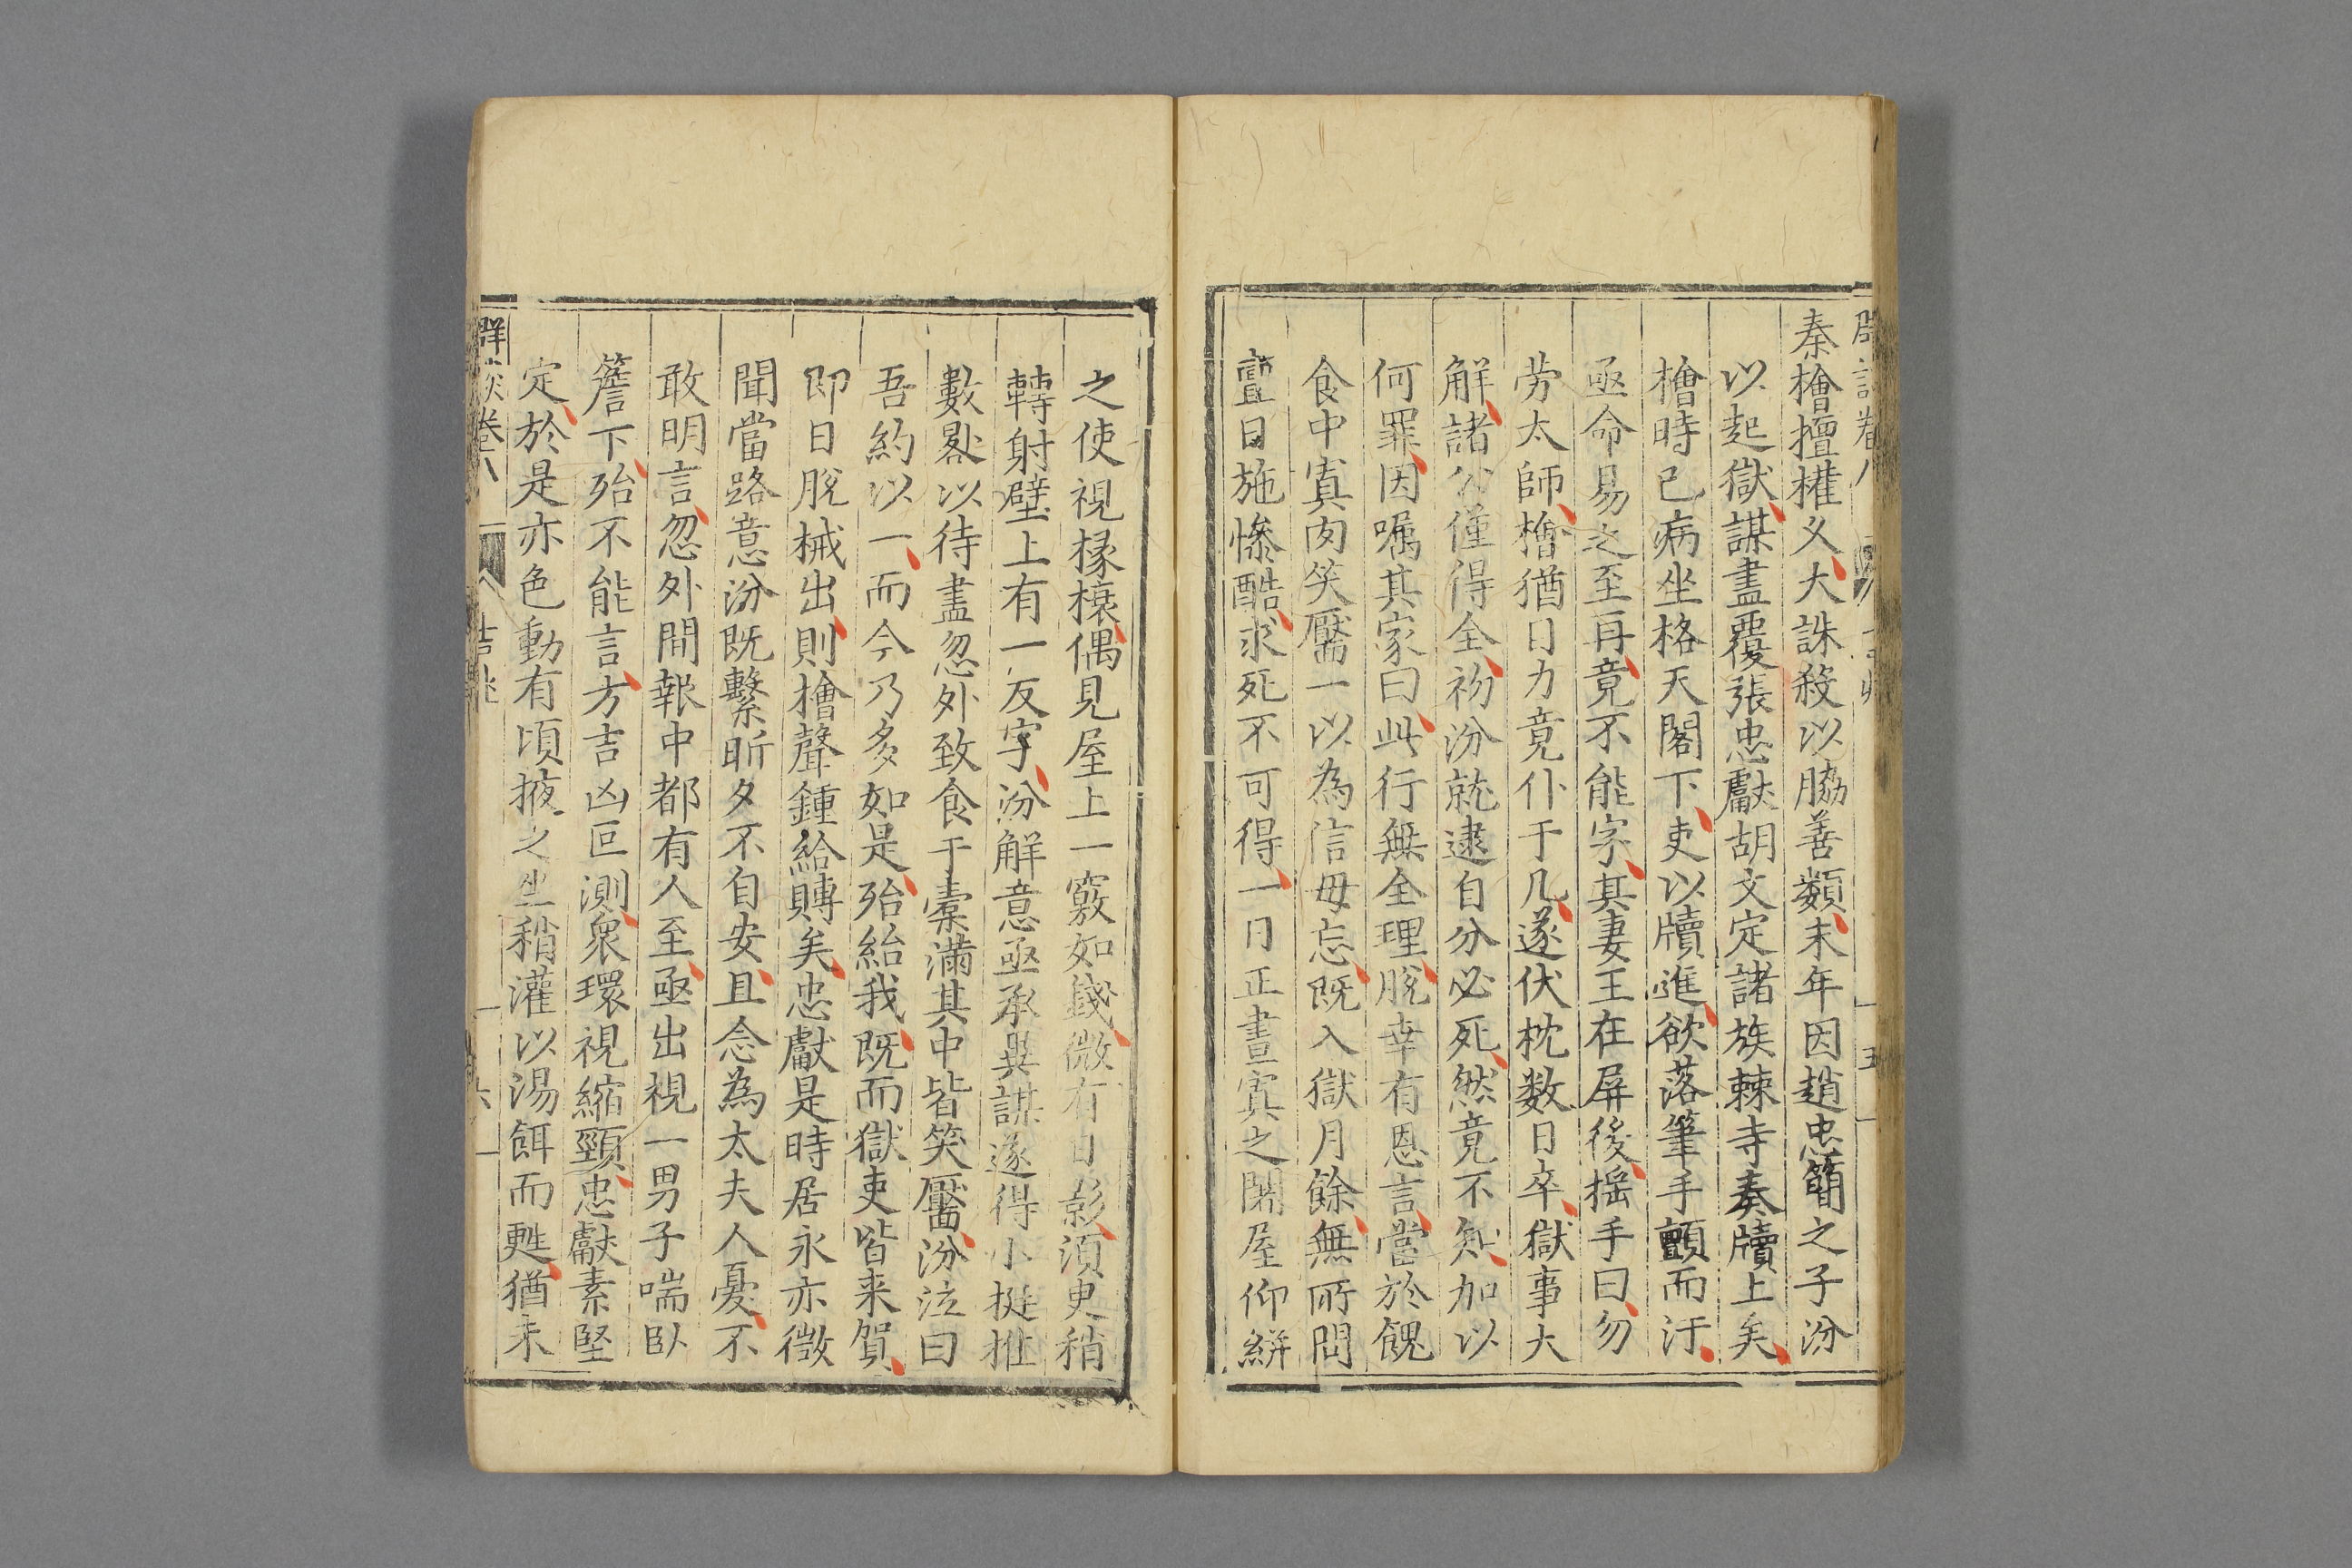 秦檜擅權义大誅殺以脇善類末年因趙忠簡之子汾
以起獄謀盡覆張忠獻胡文定諸族棘寺奏牘上矣
檜時已病坐格天閣下吏以牘進欲落筆手顫而汙
亟命易之至再竟不能字其妻王在屏後揺手曰勿
劳太師檜猶日力竟仆于几遂伏枕数日卒獄事大
解諸公僅得全初汾就逮自分必死然竟不知加以
何罪因嘱其家曰此行無全理脫幸有恩言當於餽
食中寘肉笑靨一以為信毋忘既入獄月餘無所問
日施慘酷求死不可得一日正晝寘之閉屋仰緋
之使視椽榱偶見屋上一竅如錢微有日影須臾稍
轉射壁上有一反字汾解意亟承異謀遂得小挺推
數晷以待盡忽外致食于橐滿其中皆笑靨汾泣曰
吾約以一而今乃多如是殆紿我既而獄吏皆来賀
即日脫械出則檜聲鍾給賻矣忠獻是時居永亦微
聞當路意汾既繫昕夕不自安且念為太夫人憂不
敢明言忽外間報中都有人至亟出視一男子喘卧
簷下殆不能言方吉凶叵測衆環視縮頸忠獻素堅
定於是亦色動有頃掖之坐稍灌以湯餌而甦猶未
卷八
六
卷八
五